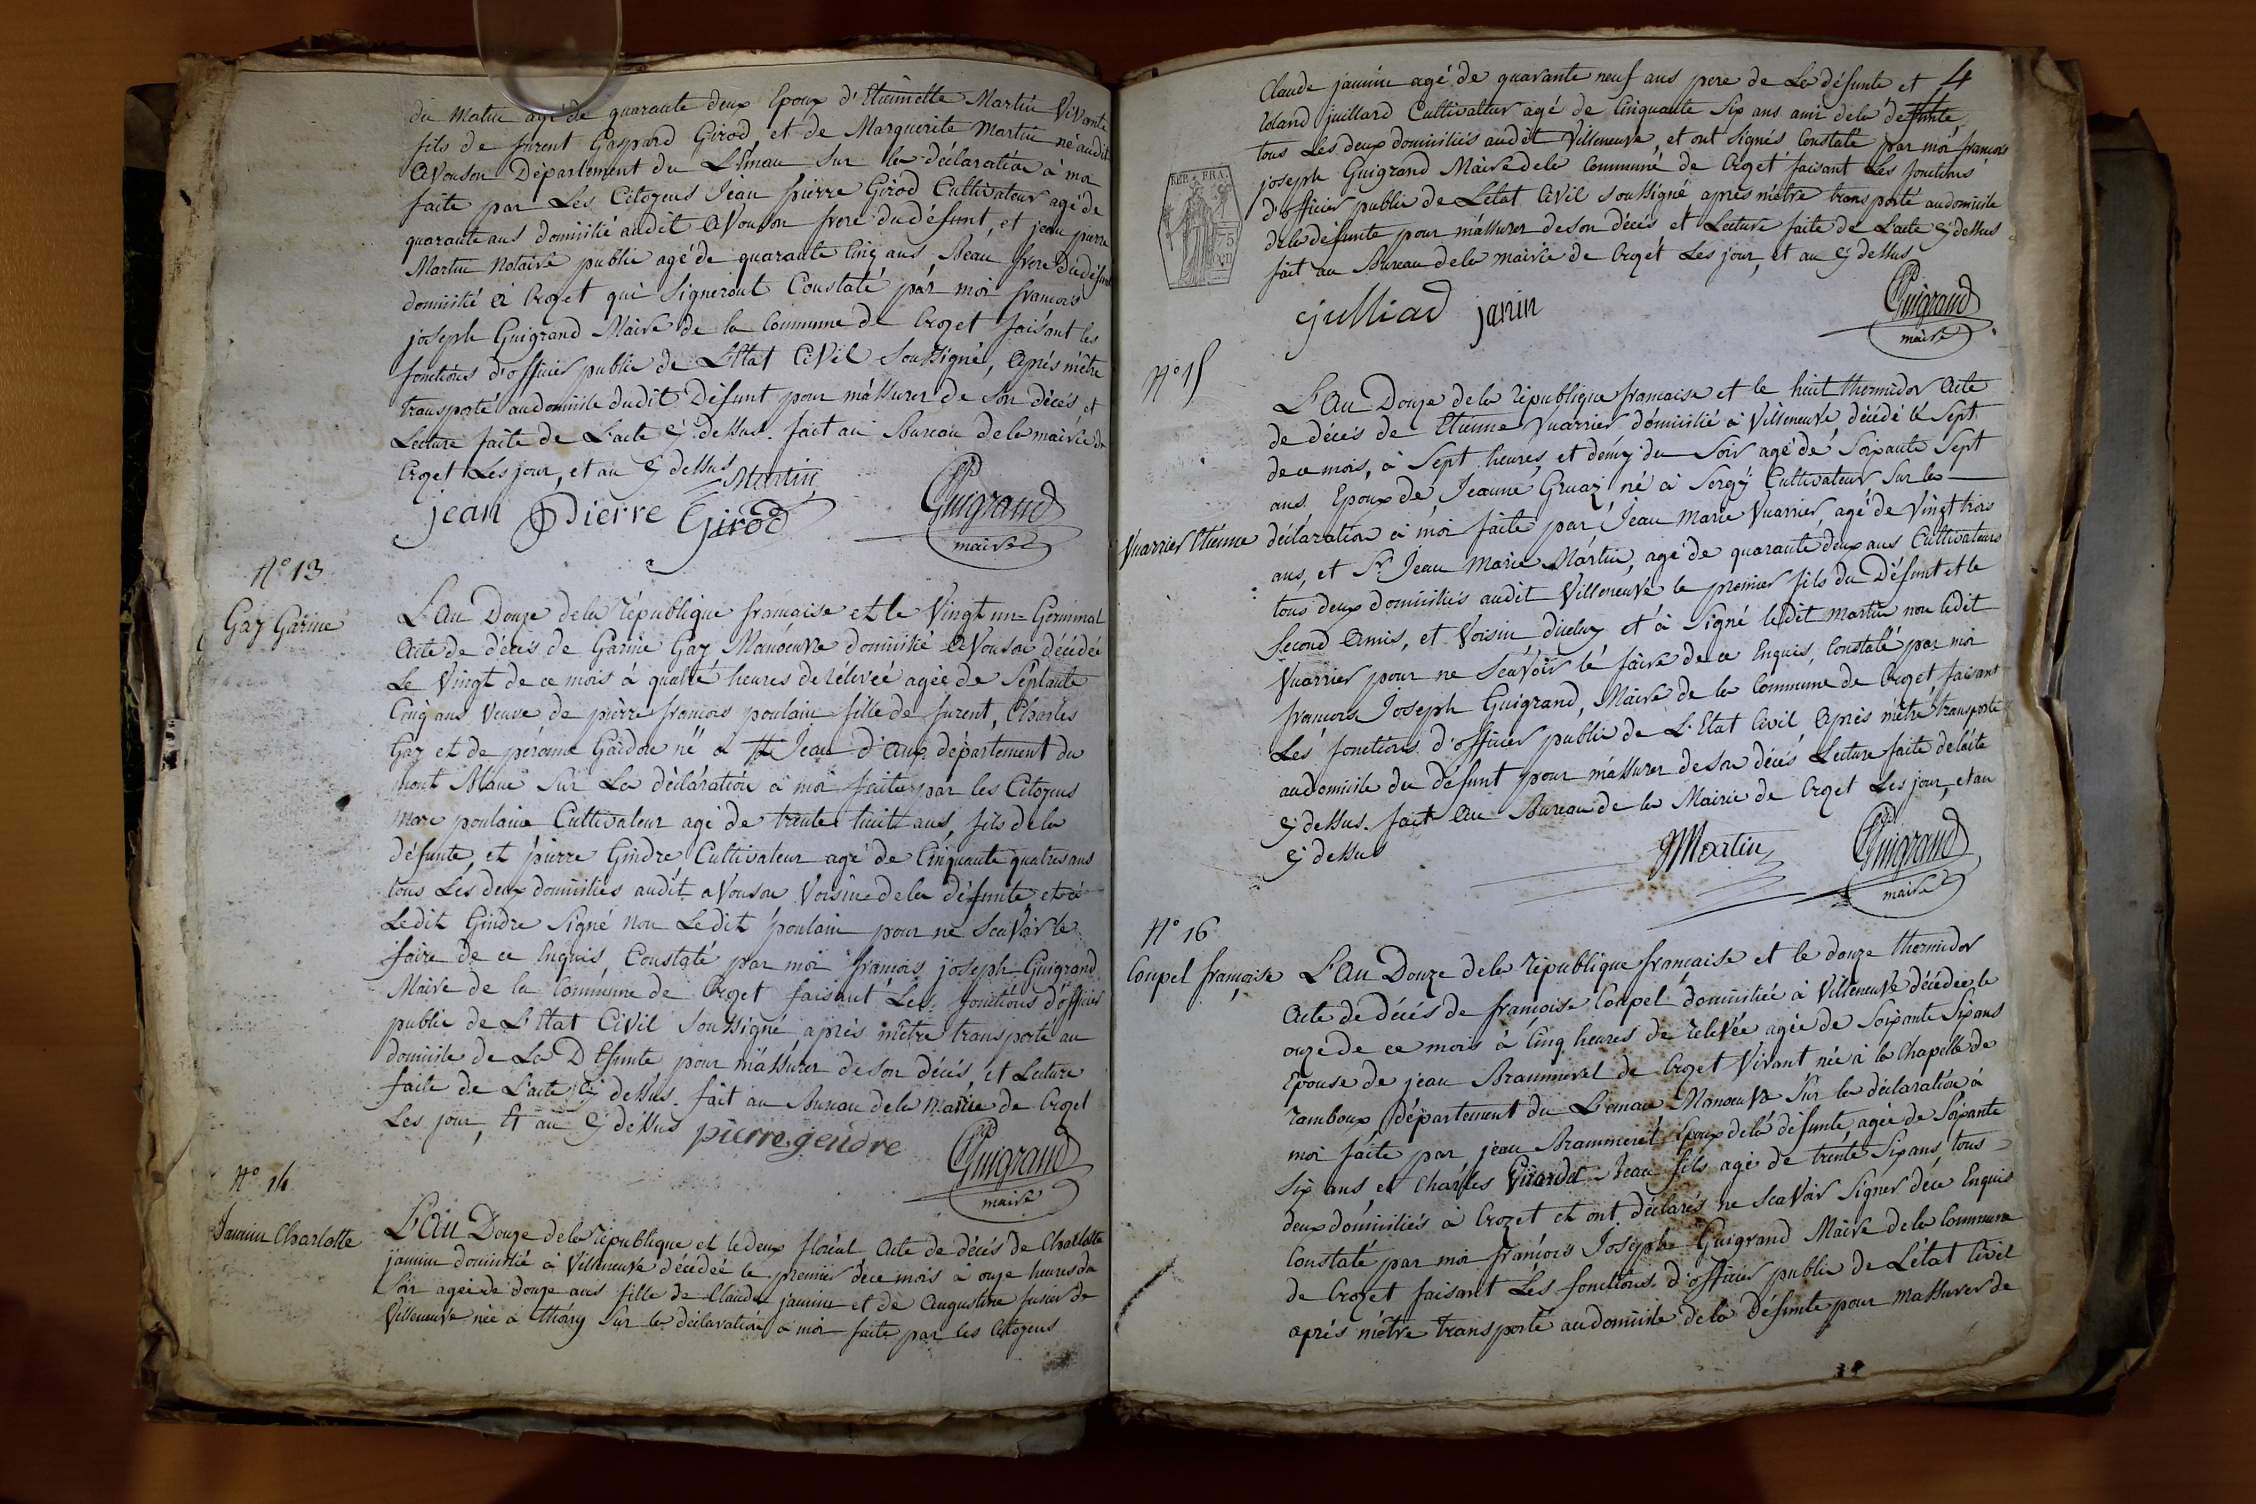 du matin agé de quarante deux Epoux d'Etiennette Martin Vivante
fils de furent Gaspard Girod et de Marguerite Martin né audit
Avouson Département du Léman Sur la déclaration à moi
faite par Les Citoyens Jean pierre Girod Cultivateur agé de
quarante ans domicilié audit Avouson frere du défunt, et jean pierre
Martin Notaire public agé de quarante Cinq ans, Beau frere du défunt
domicilié à Crozet qui Signeront Constaté par moi francois
joseph Guigrand Maire de la Commune de Crozet faisant les
fonctions d'officier public de L'Etat Civil Soussigné, Après m'être
transporté audomicile dudit Défunt pour m'assurer de Son décés et
Lecture faite de L'acte Cy dessus. fait au Bureau dela mairie de
Crozet Les jour, et an Cy dessus
Martin
jean Pierre Girod
Guigrand
maire
N° 13
Gay Garine
L'An Douze dela République française et le Vingt un Germinal
Acte de décès de Garine Gay Manoeuvre domicilié Avouson décédée
Le Vingt de ce mois à quatre heures de rélevée agée de Septante
Cinq ans Veuve de pierre francois poulain fille de furent, Charles
Gay et de péronne Gaidon né à St Jean d'Aup département du
mont Blanc Sur La déclaration à moi faite par les Citoyens
marc poulain Cultivateur agé de trente huit ans, fils dela
défunte, et pierre Gindre Cultivateur agé de Cinquante quatres ans
tous Lés deux domiciliés audit avouson Voisin dela défunte et à
Ledit Gindre Signé non Ledit poulain pour ne Scavoir le
faire de ce Enquis, Constaté par moi francois joseph Guigrand
Maire de la Commune de Crozet faisant Les fonctions d'officier
public de L'Etat Civil Soussigné aprés mêtre transporté au
domicile de La Défunte pour m'assurer deson décés, et Lecture
faite de L'acte Cy dessus. fait au Bureau dela Mairie de Crozet
Les jour, et an Cy dessus
pierre gendre
Guigrand
maire
N° 14
Jannin Charlotte
L'An Douze dela République et le deux floréal Acte de décés de Charlotte
jannin domicilié à Villeneuve décédeé le premier déce mois à onze heures du
Soir ageé de douze ans fille de Claude jannin et de Augustine fusier de
Villeneuve née à thoiry Sur la déclaration à moi faite par les Citoyens
4
Claude jannin agé de quarante neuf ans pere de La défunte et
Roland juillard Cultivateur agé de Cinquante Six ans ami dela défunte
tous Les deux domiciliés audit Villeneuve, et ont Signés Constaté par moi francois
joseph Guigrand Maire dela Commune de Crozet faisant Les fonctions
d'officier public de L'état Civil Soussigné aprés m'être transporté audomicile
dela défunte pour m'assurer deson décés et Lecture faite de L'acte Cy dessus
fait au Bureau dela mairie de Crozet Les jour, et an Cy dessus
REP. FRA.
julliad janin
Guigrand
maire
N° 15
Vuarrier Etienne
L'An Douze dela République francaise et le huit thermidor Acte
de décés de Etienne Vuarrier domicilié à Villeneuve, décédé lé Sept
de ce mois, à Sept heures, et démy du Soir agé de Soixante Sept
ans Epoux de Jeanne Gruaz né à Sergy Cultivateur Sur la
déclaration à moi faite par Jean Marie Vuarrier agé de Vingt trois
ans, et Sr. Jean Marie Martin, agé de quarante deux ans Cultivateurs
tous deux domiciliés audit Villeneuve le premier fils du Défunt et le
Second Amis, et Voisin diceluy et à Signé ledit martin non ledit
Vuarrier pour ne Scavoir lé faire de ce Enquis, Constaté par moi
francois Joseph Guigrand, Maire de la Commune de Crozet faisant
Les fonctions d'officier public de L'Etat Civil Après m'être transporté
audomicile du défunt pour m'assurer deson décés Lecture faite delacte
Cy dessus. fait au Bureau de la Mairie de Crozet Les jour, et an
Cy dessus
JMartin
Guigrand
maire
N° 16
Coupel françoise
L'An Douze dela République francaise et le douze thermidor
Acte de décés de françoise Coupel domiciliée à Villeneuve décédée le
onze de ce mois à Cinq heures de relevée agée de Soixante Six ans
Epouse de jean Brammerel de Crozet Vivant née à la Chapelle de
ramboux Département du Léman, Manoeuvre Sur la déclaration à
moi faite par jean Brammerel Epoux dela défunte, agée de Soixante
Six ans, et Charles Girardot Beau fils agé de trente Six ans, tous
deux domiciliés à Crozet et ont déclarés ne Scavoir Signer déce Enquis
Constaté par moi françois Joseph Guigrand Maire dela Commune
de Crozet faisant Les fonctions d'officier public de L'état Civil
aprés m'être transporté audomicile dela défunte pour m'assurer de